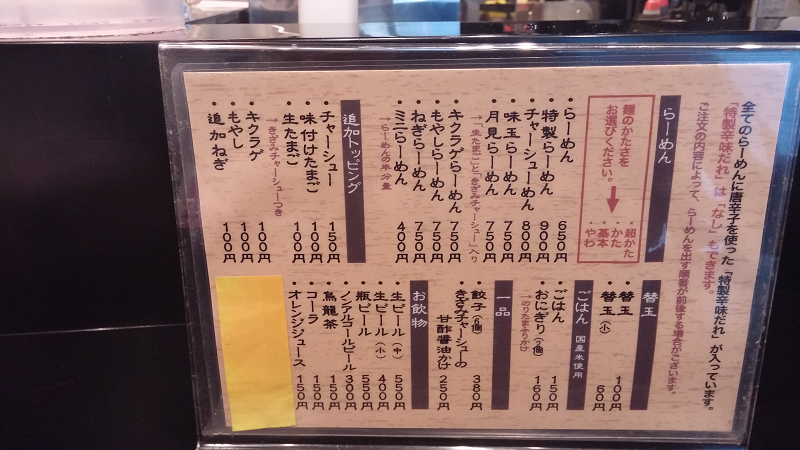 全てのらーめんに唐辛子を使った「特製辛味だれ」が入っています。
「特製辛味だれ」は「なし」もできます。
ご注文の内容によって、らーめんを出す順番が前後する場合がございます。
らーめん
麺のかたさを
お選びください。
→
・超かた
・かた
・基本
・やわ
・らーめん 650円
・特製らーめん 900円
・チャーシューめん 800円
・味玉らーめん 750円
・月見らーめん 750円
→「生たまご」と「きざみチャーシュー」入り
・キクラゲらーめん 750円
・もやしらーめん 750円
・ねぎらーめん 750円
・ミニらーめん 400円
→らーめんの半分量
追加トッピング
・チャーシュー 150円
・味付けたまご 100円
・生たまご 100円
→きざみチャーシューつき
・キクラゲ 100円
・もやし 100円
・追加ねぎ 100円
替玉
・替玉 100円
・替玉(小) 60円
ごはん 国産米使用
・ごはん 150円
・おにぎり(2個) 160円
→のりたまふりかけ
一品
・餃子(6個) 380円
・きざみチャーシューの
甘酢醤油かけ 250円
お飲物
・生ビール(中) 550円
・生ビール(小) 400円
・瓶ビール 550円
・ノンアルコールビール 300円
・烏龍茶 150円
・コーラ 150円
・オレンジジュース 150円